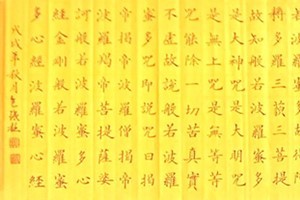 耨多羅三藐三菩提
故知般若波羅蜜多
是大神咒是大明咒
是無上咒是無等等
咒能除一切苦真實
不虛故說般若波羅
蜜多咒即說咒曰揭
帝揭帝波羅揭帝
波羅揭帝菩提薩婆
訶般若波羅蜜多心
經金剛般若波羅蜜
多心經波羅蜜多心經
戊戌年秋月